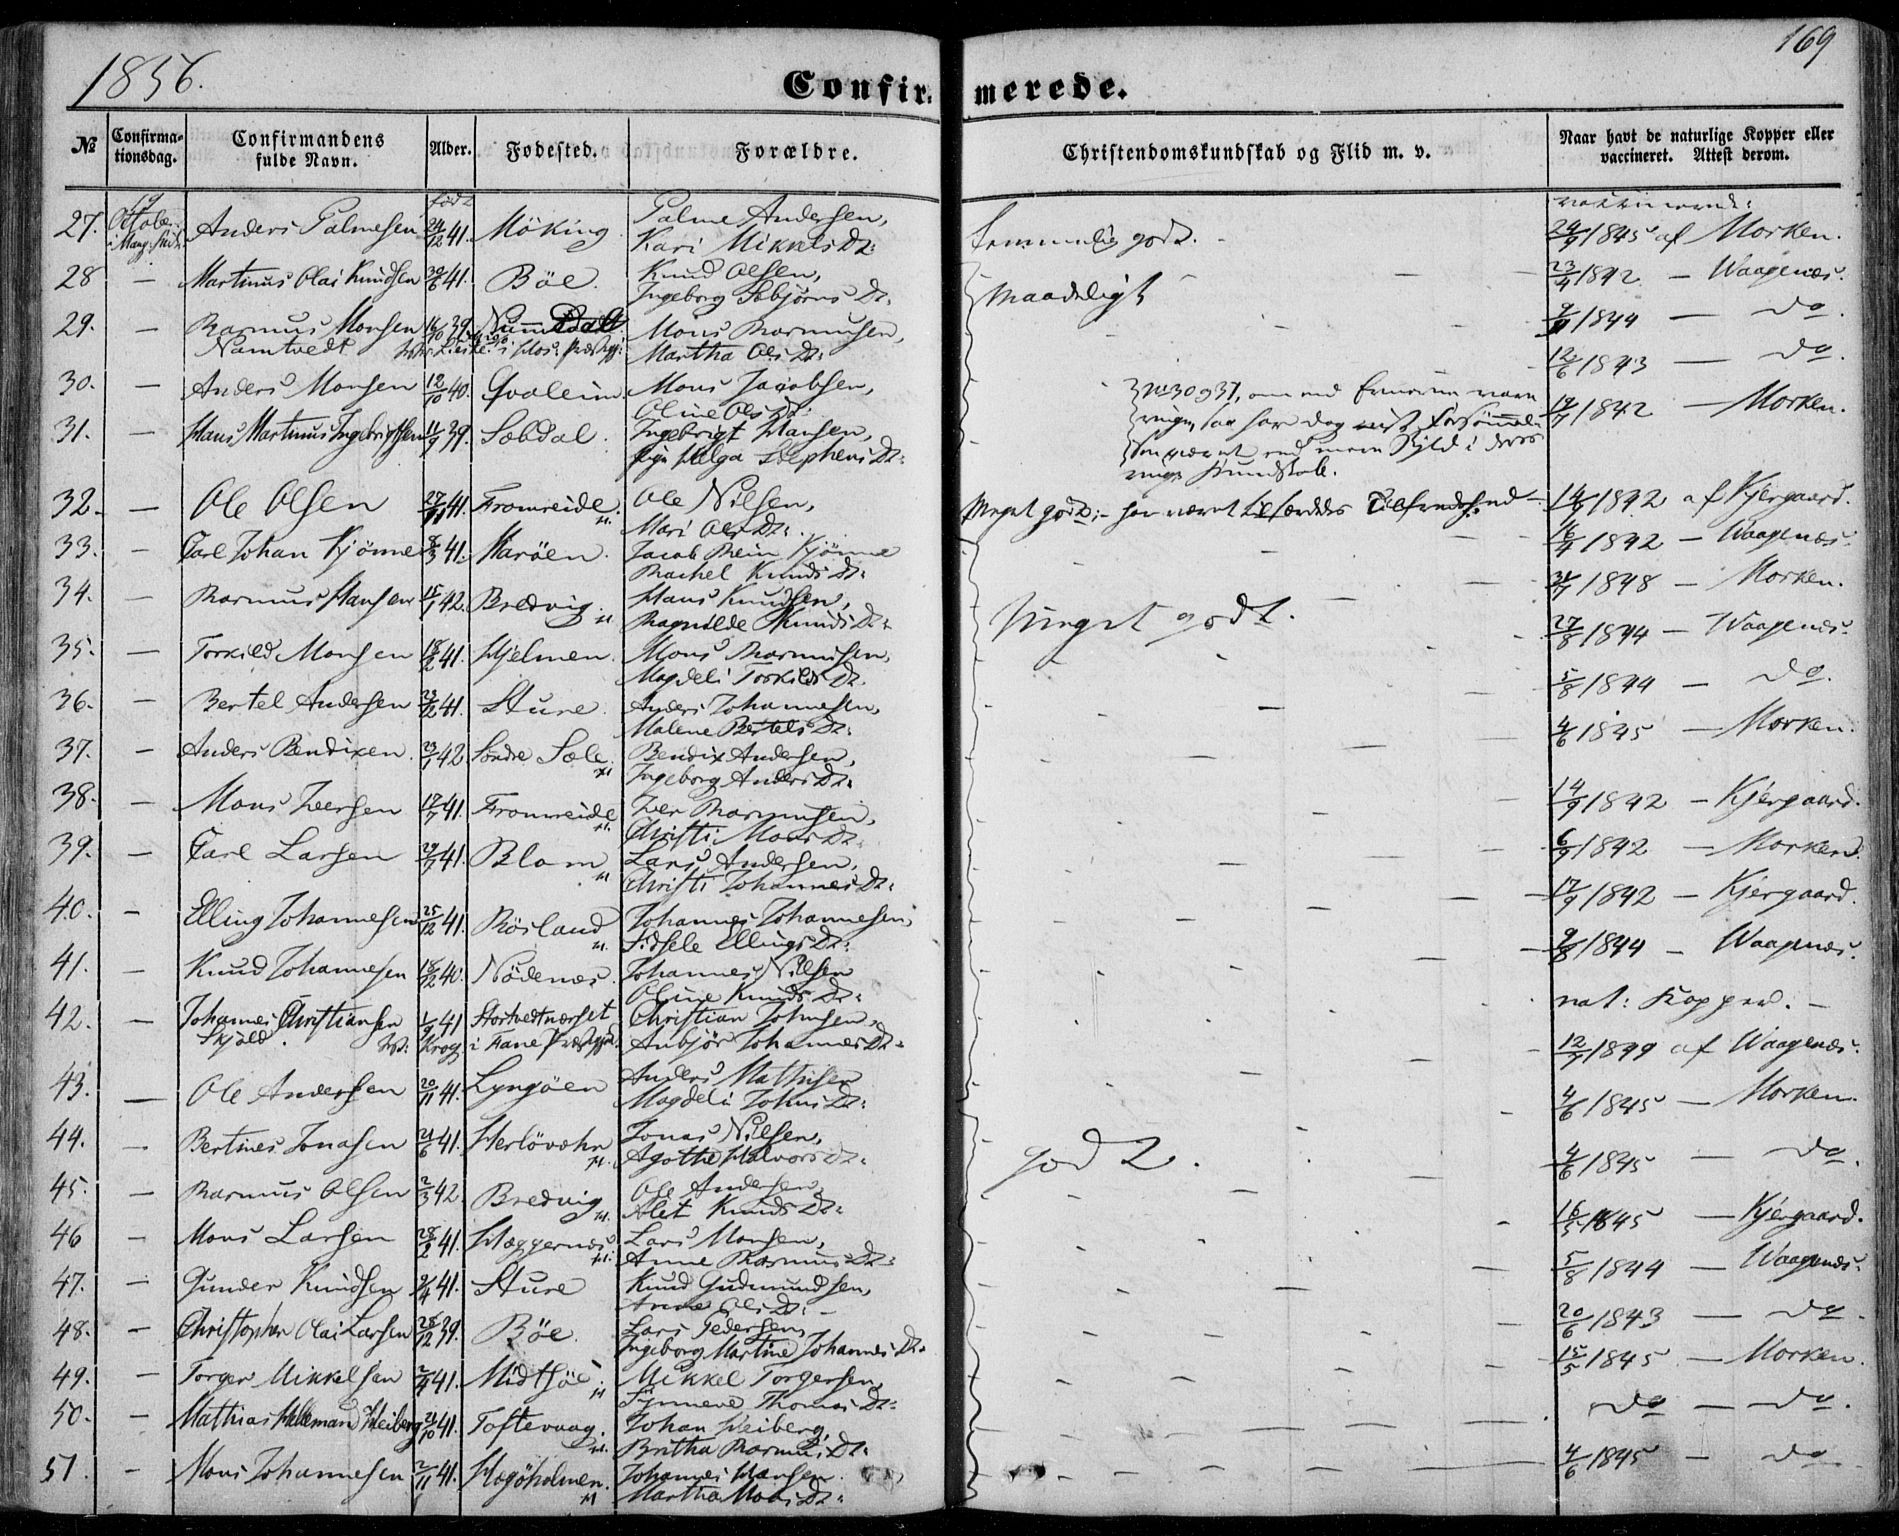 1856.
169
Confirmerede.
№ Confirmationsdag. Confirmandens fulde Navn. Alder. Fødested. Forældre. Christendomskundskab og Flid m. v. Naar havt de naturlige Kopper eller vaccineret. Attest derom.
27. 19 October Anders Palmesen født 24/12 41. Möking Palme Andersen, Kari Mikkels Dt: temmelig godt. 24/9 1845 af Morken.
28 — Martinus Olai Knudsen 30/6 41. Böe. Knud Olsen, Ingeborg Dt: Maadeligt 23/4 1842 — Waagenæs.
29. — Rasmus Monsen Namtvedt 16/10 39. Mons Rasmusen, Martha Ols Dt: 1844 — do
12/6 1843 — do.
30. — Anders Monsen 12/10 40. Qvaleim Mons Jacobsen, Oline Ols Dt: No 30 og 31,
31. — Hans Martinus Ingebrigtsen 11/9 39. Sæbdal. Ingebrigt Hansen, Helga Stephens Dt: 19/7 1842 — Morken.
ringe Kundskab.
32. — Ole Olsen 27/11 41. Fromreide. Ole Nilsen, Mari Ols Dt: Meget godt; har været 14/9 1842 af Kjergaard.
33. — Carl Johan Kjönne 8/3 41. Maröen. Jacob Rein Kjönne Rachel Knuds Dt: 16/4 1842 — Waagenæs.
34. — Rasmus Hansen 15/1 42. Bredvig Hans Knudsen, Ragnilde Knuds Dt: Meget godt. 31/7 1848 — Morken.
35. — Torkild Monsen 18/2 41. Hjelmen. Mons Rasmusen, Magdeli Torkilds Dt. 27/8 1844 — Waagenæs.
36. — Bertel Andersen 23/12 41. Sture. Anders Johannesen, Malene Bertels Dt: 5/8 1844 — do.
37. — Anders Bendixen. 23/1 42 Söndre Sæle. Bendix Andersen, Ingeborg Anders Dt: 4/6 1845 — Morken.
38. — Mons Iversen 17/7 41. Fromreide Iver Rasmusen, Christi Mons Dt: 14/9 1842 — Kjergaard.
39. — Carl Larsen 29/7 41. Blom Lars Andersen, Christi Johannes Dt: 6/9 1842 — Morken.
40. — Elling Johannesen 25/12 41. Rösland Johannes Johannesen, Sidsele Ellings Dt: 17/9 1842 — Kjergaard.
41. — Knud Johannesen 18/12 40. Nödenæs. Johannes Nilsen Oline Knuds Dt: 9/8 1844 — Waagenæs.
42. — Johannes Christiansen Skjold. 1/9 41 Krog Stortvedtnæsset i Fane Christian Johnsen, Anbjör Johannes Dt: nat: Kopper.
43. — Ole Andersen 20/11 41. Lyngöen Anders Mathisen Magdeli Johns Dt: 12/7 1849 af Waagenæs.
44. — Bertines Jonasen 21/6 41. Herlövæhr Jonas Nilsen, Agothe Halvors Dt: godt. 4/6 1845 — Morken.
45. — Rasmus Olsen 2/3 42. Bredvig Ole Andersen, Alet Knuds Dt: 4/6 1845 — do.
46 — Mons Larsen 28/2 41. Hæggernæs Lars Monsen, Anne Rasmus Dt: 16/5 1845 — Kjergaard.
47. — Gunder Knudsen 2/4 41. Sture Knud Gudmundsen, Anne Ols Dt: 5/8 1844 — Waagenæs.
48. — Christopher Olai Larsen 28/12 39. Böe. Lars Pedersen, Ingeborg Martine Johannes Dt: 20/6 1843 — do.
49. — Torger Mikkelsen 2/4 41. Midtsöe Mikkel Torgersen, Synneve Thomas Dt: 15/5 1845 — Morken.
50. — Mathias Heleman Heiberg 21/10 41. Toftevaag. Johan Heiberg, Britha Rasmus Dt: do — do.
51. — Mons Johannesen 2/11 41. Hagöholmen. Johannes Hansen. Martha Mons Dt: 4/6 1845 — do